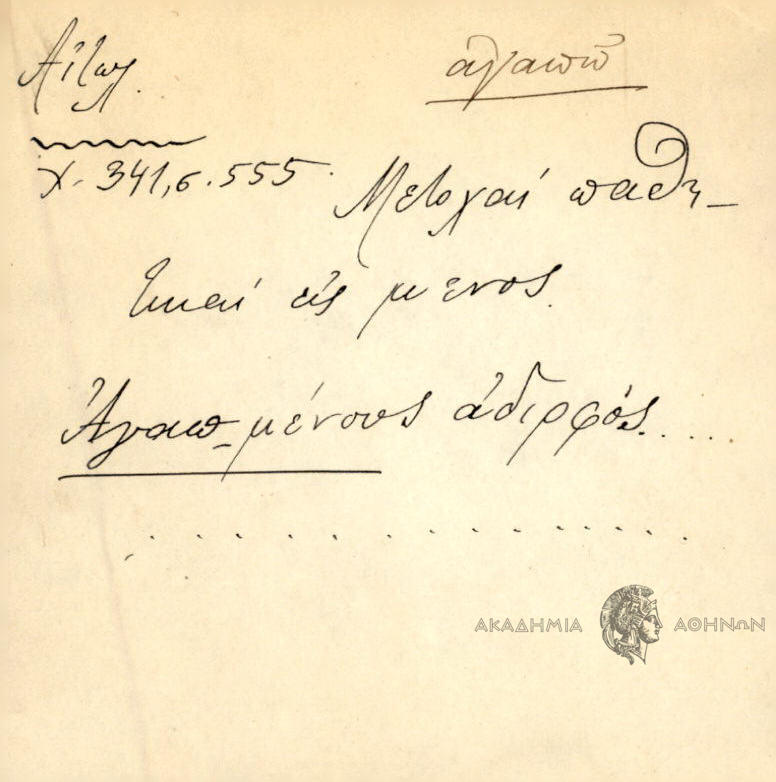 Αἰτωλ.
ἀγαπῶ
χ. 341, σ. 555.
Μετοχαί παθη-
τικαί εἰς μενος.
Ἀγαπ_μένους ἀδιρφός.....
. . . . . . . . . . . . .
ΑΚΑΔΗΜΙΑ ΑΘΗΝΩΝ